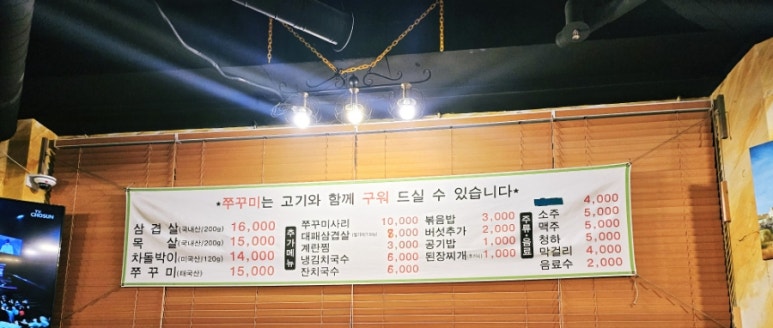 TV CHOSUN
*쭈꾸미는 고기와 함께 구워 드실 수 있습니다*
삼겹살(국내산/200g) 16,000
목살(국내산/200g) 15,000
차돌박이(미국산/120g) 14,000
쭈꾸미(태국산) 15,000
추가메뉴
쭈꾸미사리 10,000
대패삼겹살 8,000
계란찜 3,000
냉김치국수 6,000
잔치국수 6,000
볶음밥 3,000
버섯추가 2,000
공기밥 1,000
된장찌개 1,000
주류·음료
4,000
소주 5,000
맥주 5,000
청하 5,000
막걸리 4,000
음료수 2,000